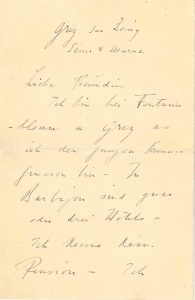 Grez sur Loing
Seine & Marne
Liebe Freundin
Ich bin bei Fontaine-
bleau in Grez wo
ich den ganzen Sommer
gewesen bin – In
Barbizon sind zwei
oder drei Hotels –
Ich kenne kein.
Pension – Ich